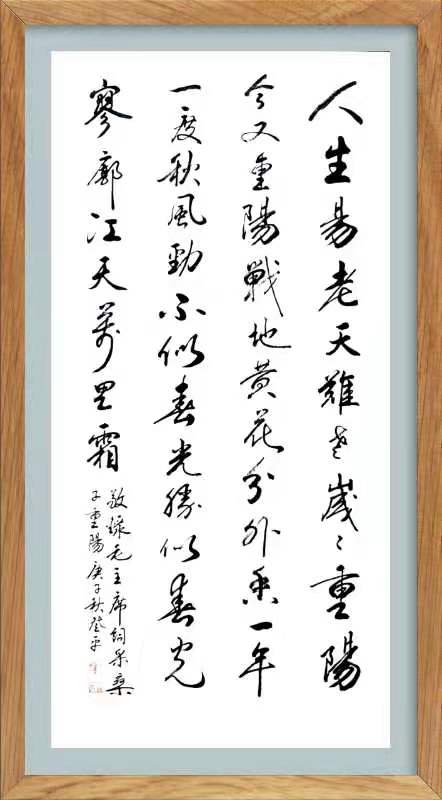 人生易老天難老歲〻重陽
今又重陽戰地黄花分外香一年
一度秋風勁不似春光勝似春光
寥廓江天萬里霜
敬録毛主席詞采桑
子重陽庚子秋登平